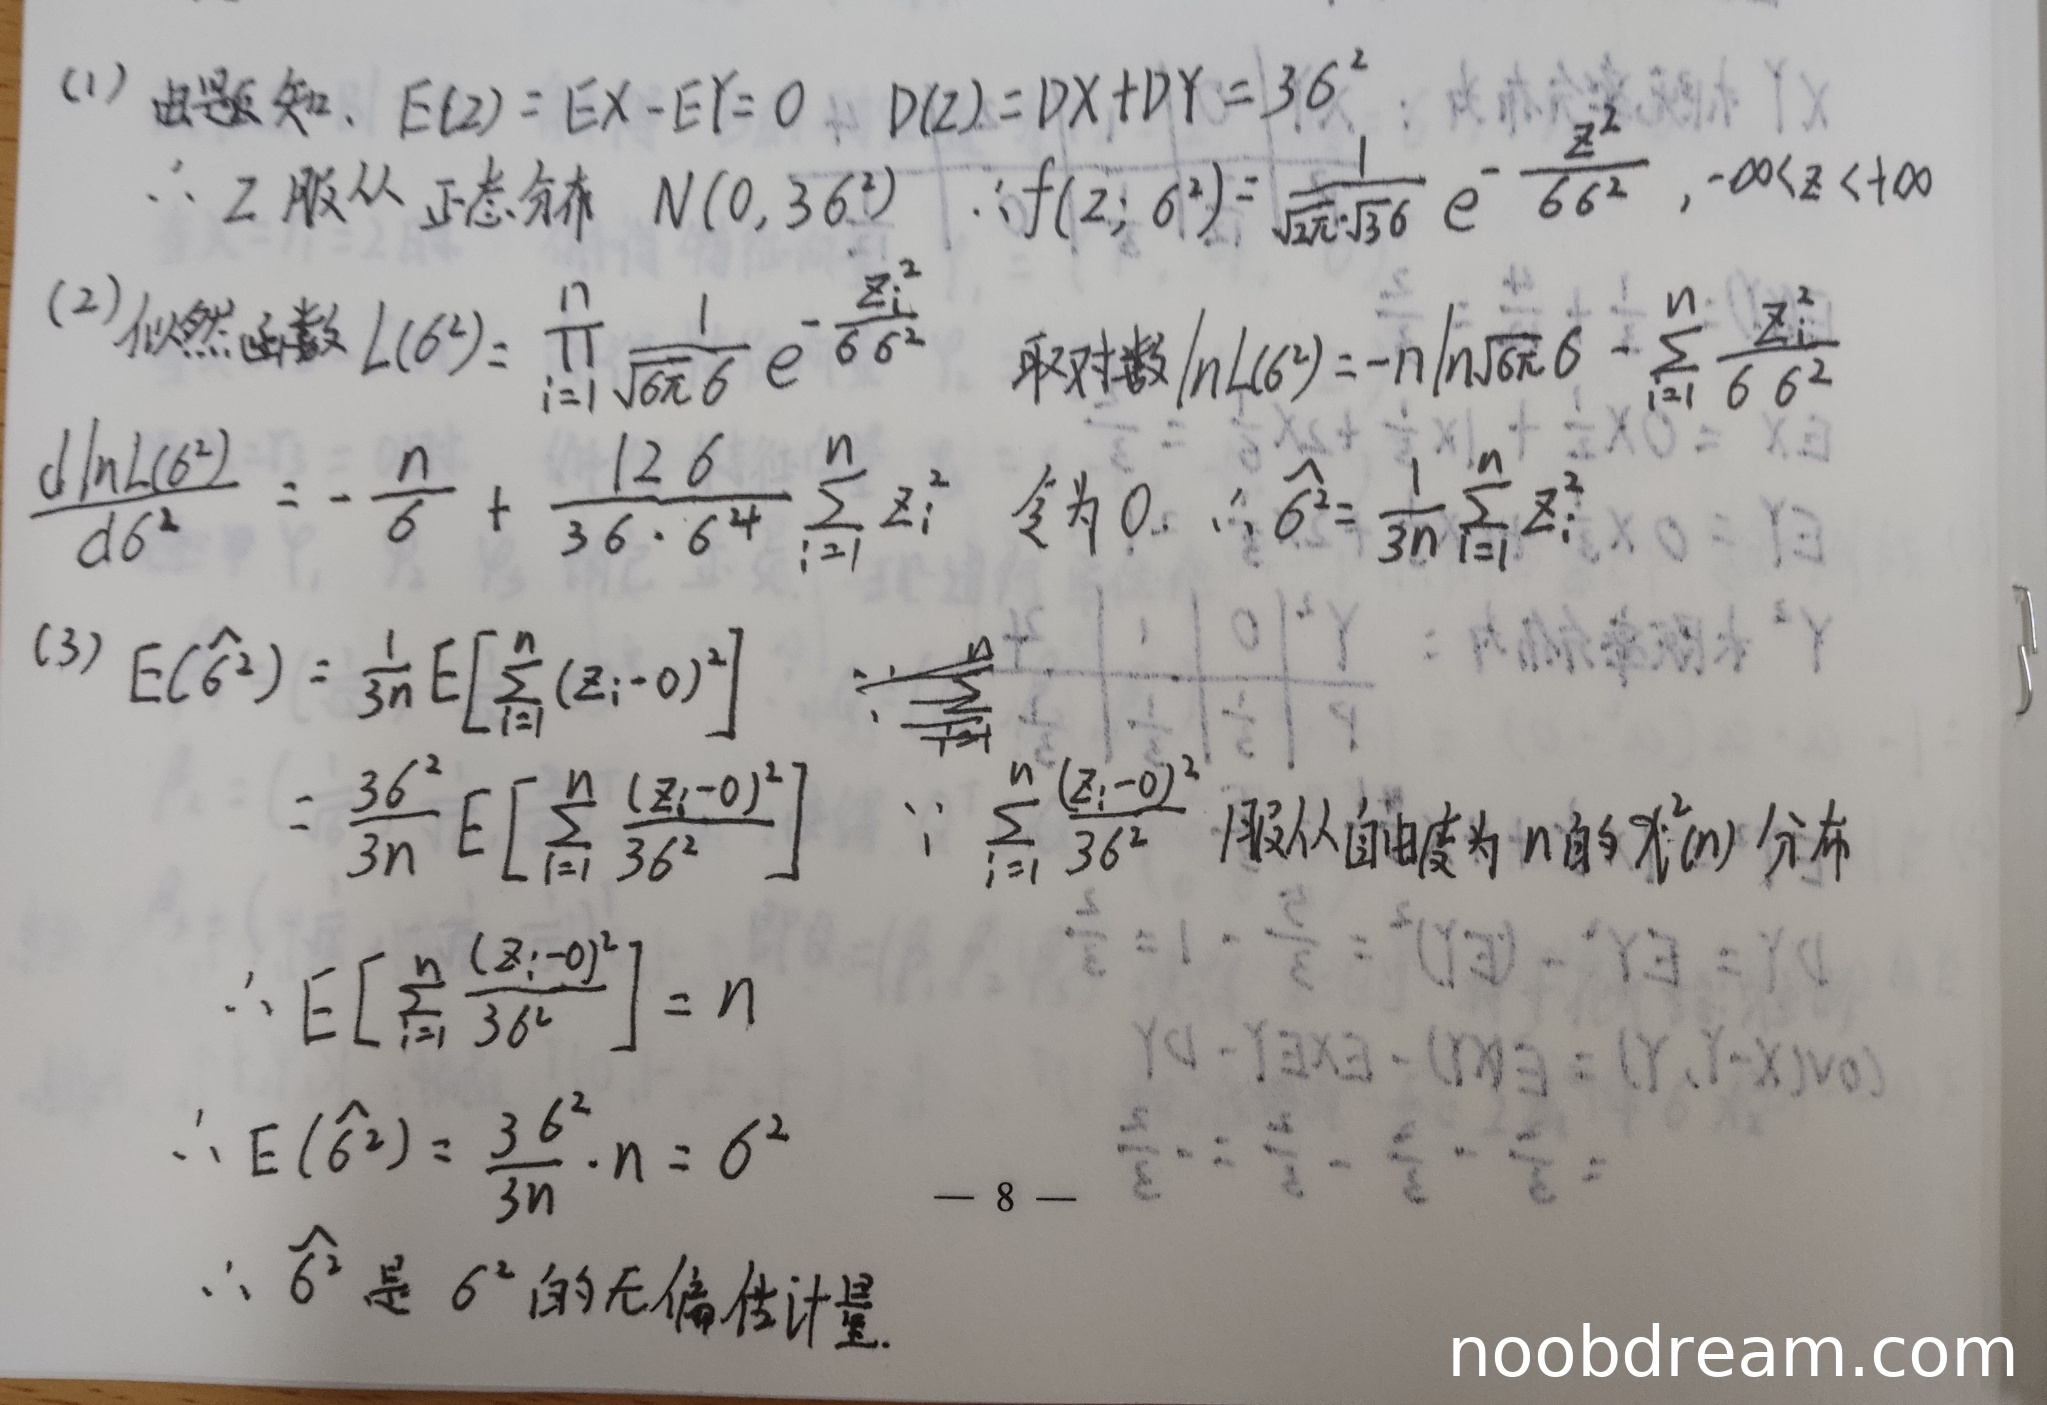 (1) 由题知、E(Z) = EX - EY = 0 D(Z) = DX + DY = 3σ²
∴ Z 服从 正态分布 N(0, 3σ²) ∴ f(z; σ²) = \frac{1}{\sqrt{2π}·\sqrt{3}σ} e^{-\frac{z²}{6σ²}}, -∞ < z < +∞
(2) 似然函数 L(σ²) = \prod_{i=1}^{n} \frac{1}{\sqrt{6π}σ} e^{-\frac{z_i²}{6σ²}} 取对数 lnL(σ²) = -n ln\sqrt{6π}σ - \sum_{i=1}^{n} \frac{z_i²}{6σ²}
\frac{d lnL(σ²)}{dσ²} = -\frac{n}{σ} + \frac{12σ}{36·σ^{4}} \sum_{i=1}^{n} z_i² 令为0. ∴ \hat{σ²} = \frac{1}{3n} \sum_{i=1}^{n} z_i²
(3) E(\hat{σ²}) = \frac{1}{3n} E[\sum_{i=1}^{n} (z_i - 0)²]
= \frac{3σ²}{3n} E[\sum_{i=1}^{n} \frac{(z_i - 0)²}{3σ²}] ∵ \sum_{i=1}^{n} \frac{(z_i - 0)²}{3σ²} 服从自由度为 n 的 χ²(n) 分布
∴ E[\sum_{i=1}^{n} \frac{(z_i - 0)²}{3σ²}] = n
∴ E(\hat{σ²}) = \frac{3σ²}{3n} · n = σ²
— 8 —
∴ \hat{σ²} 是 σ² 的无偏估计量.
noobdream.com